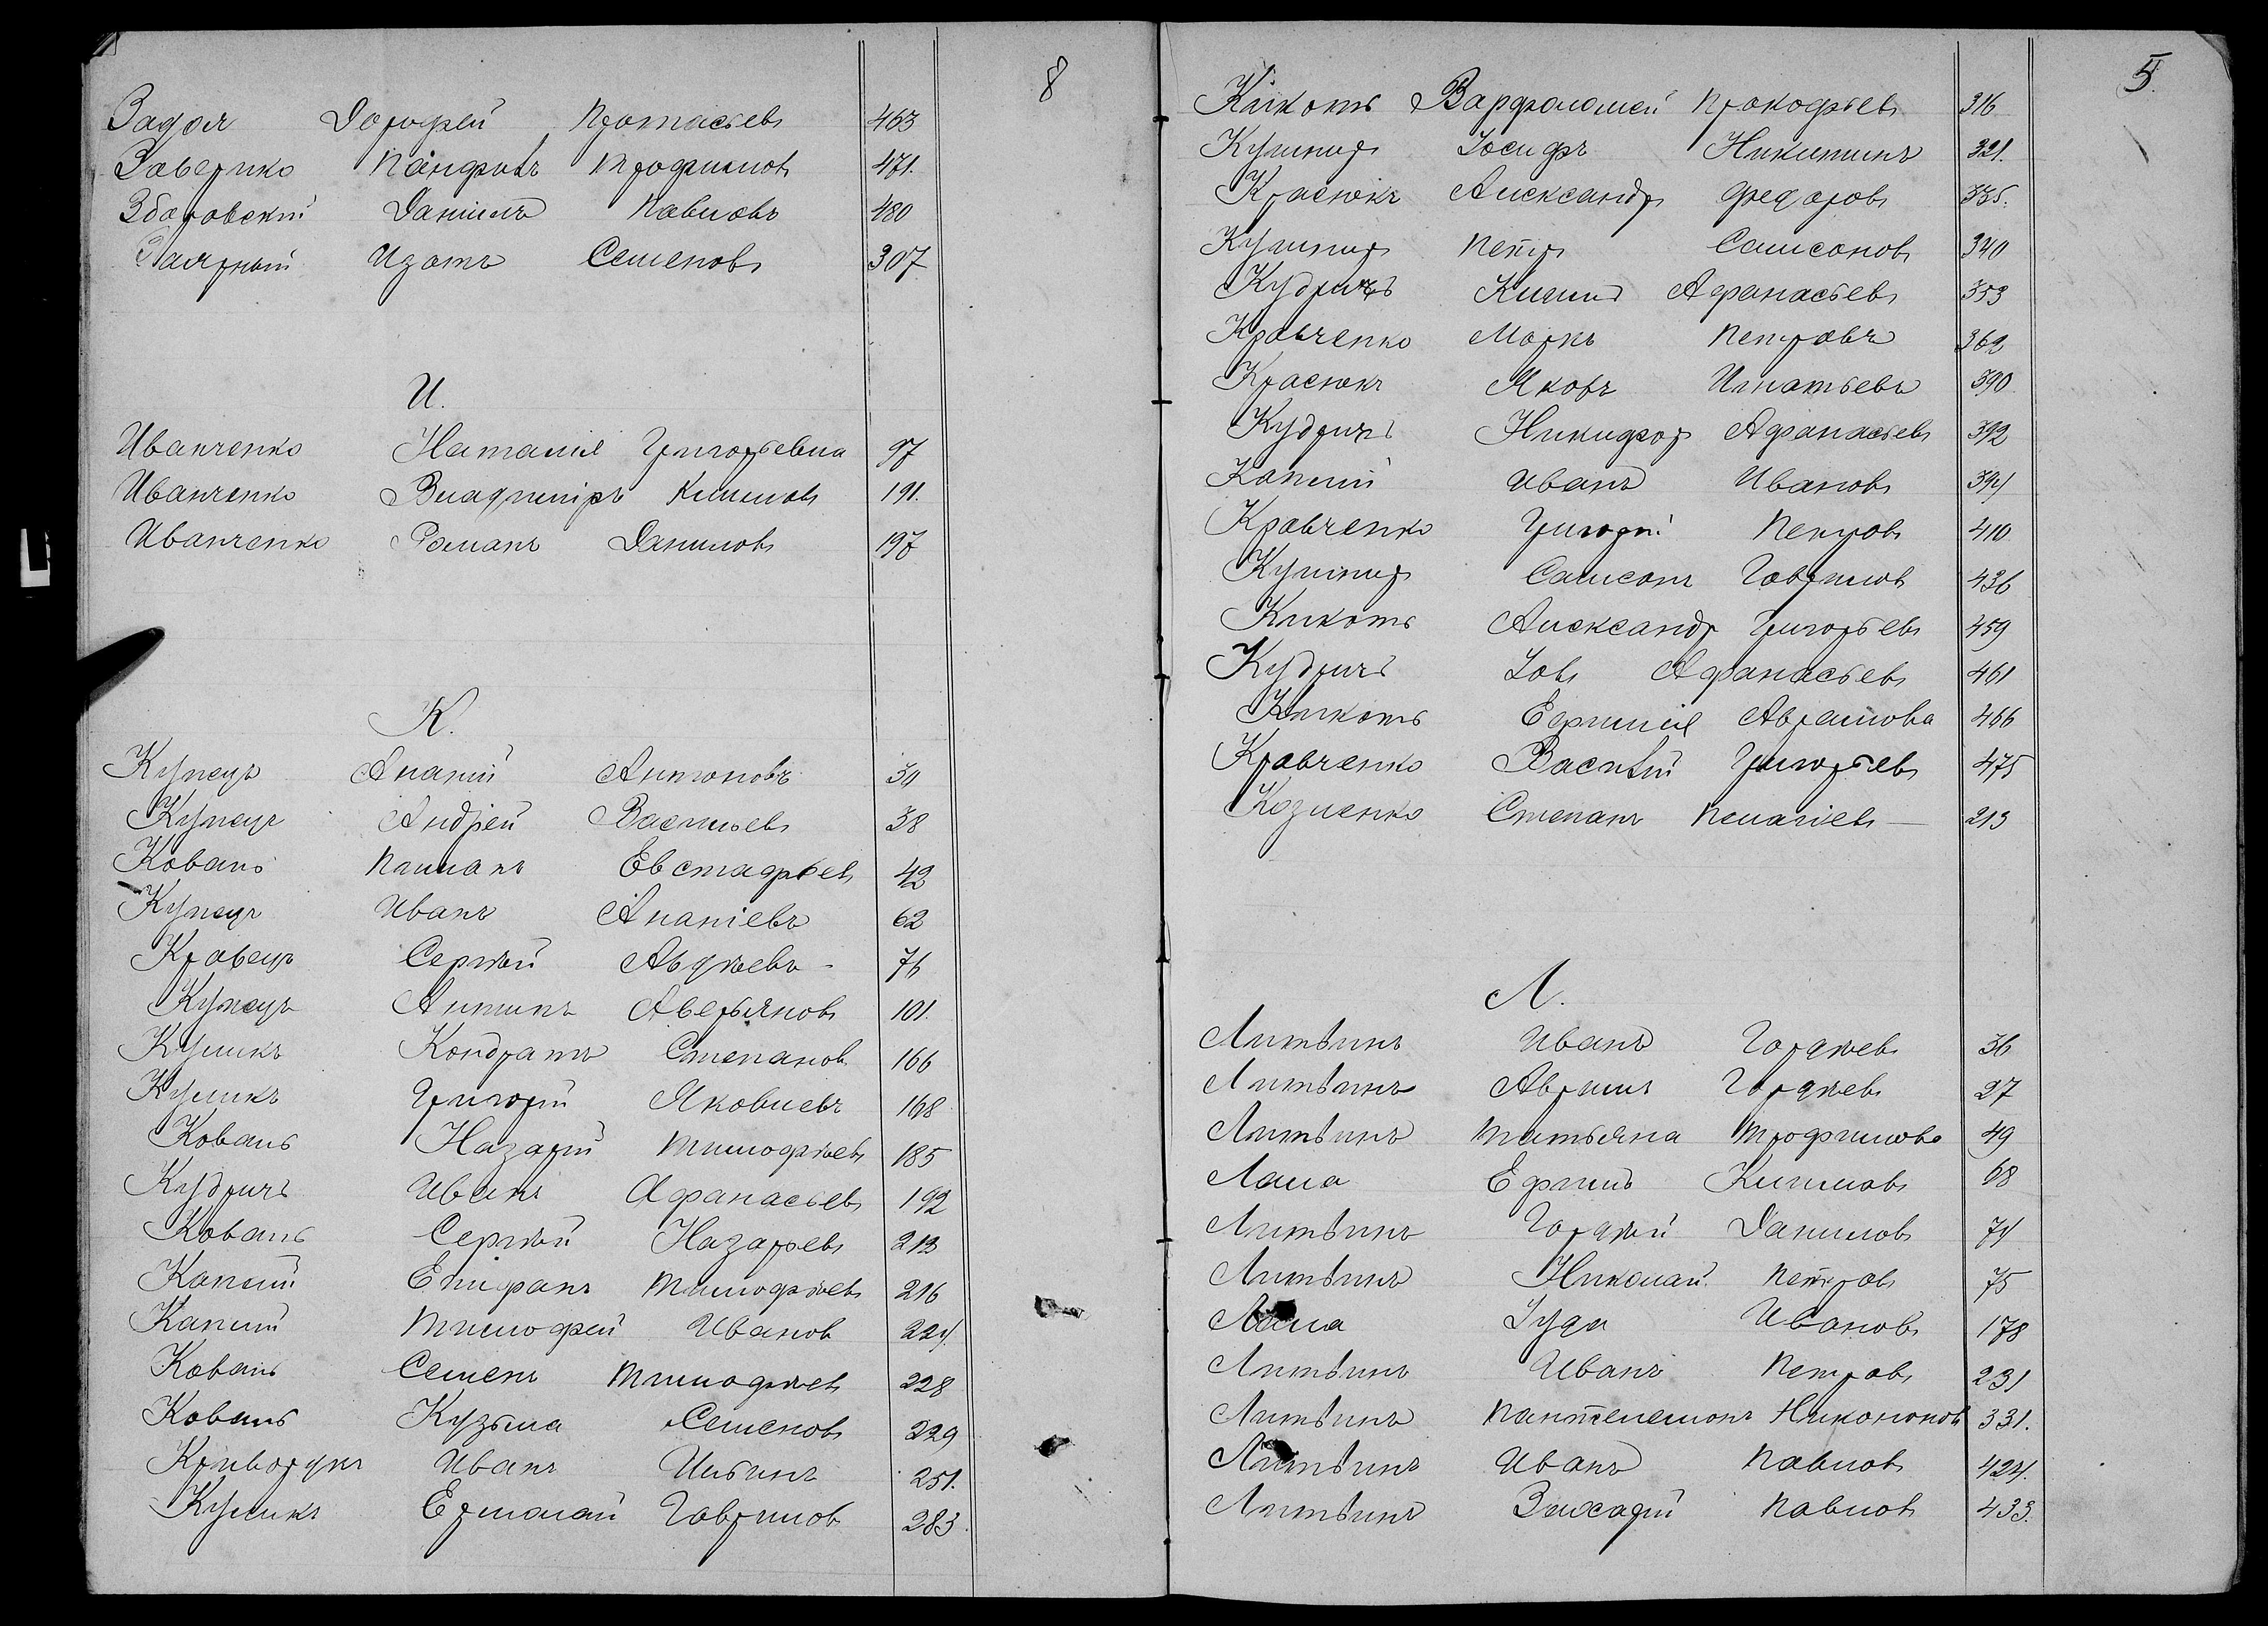 8
Задоя Дорофей Протасьевъ 463
Заверико Панфилъ Трофимовъ 471.
Зборовскій Даніилъ Павловъ 480
Заярный Изотъ Семеновъ 307
И.
Иванченко Наталія Григорьевна 97
Иванченко Владиміръ Климовъ 191.
Иванченко Романъ Даниловъ 197
К.
Купецъ Ананій Антоновъ 30
Купецъ Андрей Васильевъ 38
Коваль Евстафьевъ 42
Купецъ Иванъ Ананіевъ 62
Кравецъ Сергѣй Авдѣевъ 76
Купецъ Антипъ Аверьяновъ 101.
Куликъ Кондратъ Степановъ 166
Куликъ Григорій Яковлевъ 168
Коваль Назарій Тимофѣевъ 185
Кудричъ Иванъ Афанасьевъ 192
Коваль Сергѣй Назарьевъ 213
Каплій Епифанъ Тимофѣевъ 216
Каплій Тимофей Ивановъ 224.
Коваль Семенъ Тимофѣевъ 228
Коваль Кузьма Семеновъ 229
Криворукъ Иванъ Ильинъ 251.
Куликъ Ермолай Гавриловъ 283.
5.
Кикоть Варфоломей Прокофьевъ 316
Кушниръ Іосифъ Никитинъ 321.
Красюкъ Александръ Федоровъ 335.
Кушниръ Петръ Самсоновъ 340
Кудричъ Килинъ Афанасьевъ 353
Кравченко Маркъ Петровъ 362
Красюкъ Яковъ Игнатьевъ 390
Кудричъ Никифоръ Афанасьевъ 392
Каплій Иванъ Ивановъ 394
Кравченко Григорій Петровъ 410
Кушниръ Самсонъ Гавриловъ 436
Кикоть Александръ Григорьевъ 459
Кудричъ Іовъ Афанасьевъ 461
Кикоть Ефимія Аврамова 466
Кравченко Василій Григорьевъ 475
Козленко Степанъ Пелагіевъ 213
Л.
Литвинъ Иванъ Гордѣевъ 36
Литвинъ Аврамъ Гордѣевъ 27
Литвинъ Татьяна Трофимова 49
Лата Ефимъ Климовъ 68
Литвинъ Гордѣй Даниловъ 74
Литвинъ Николай Петровъ 75
Лата Іуда Ивановъ 178
Литвинъ Иванъ Петровъ 231
Литвинъ Пантелемонъ Никоновъ 331.
Литвинъ Иванъ Павловъ 424.
Литвинъ Павловъ 433.